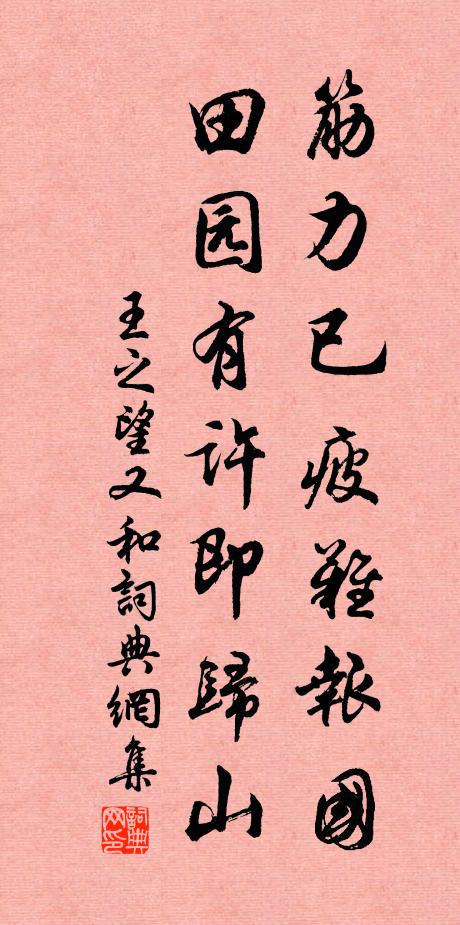 筋力已疲難報國
田园有許即歸山
王之望又和詞典網集
詞典网印